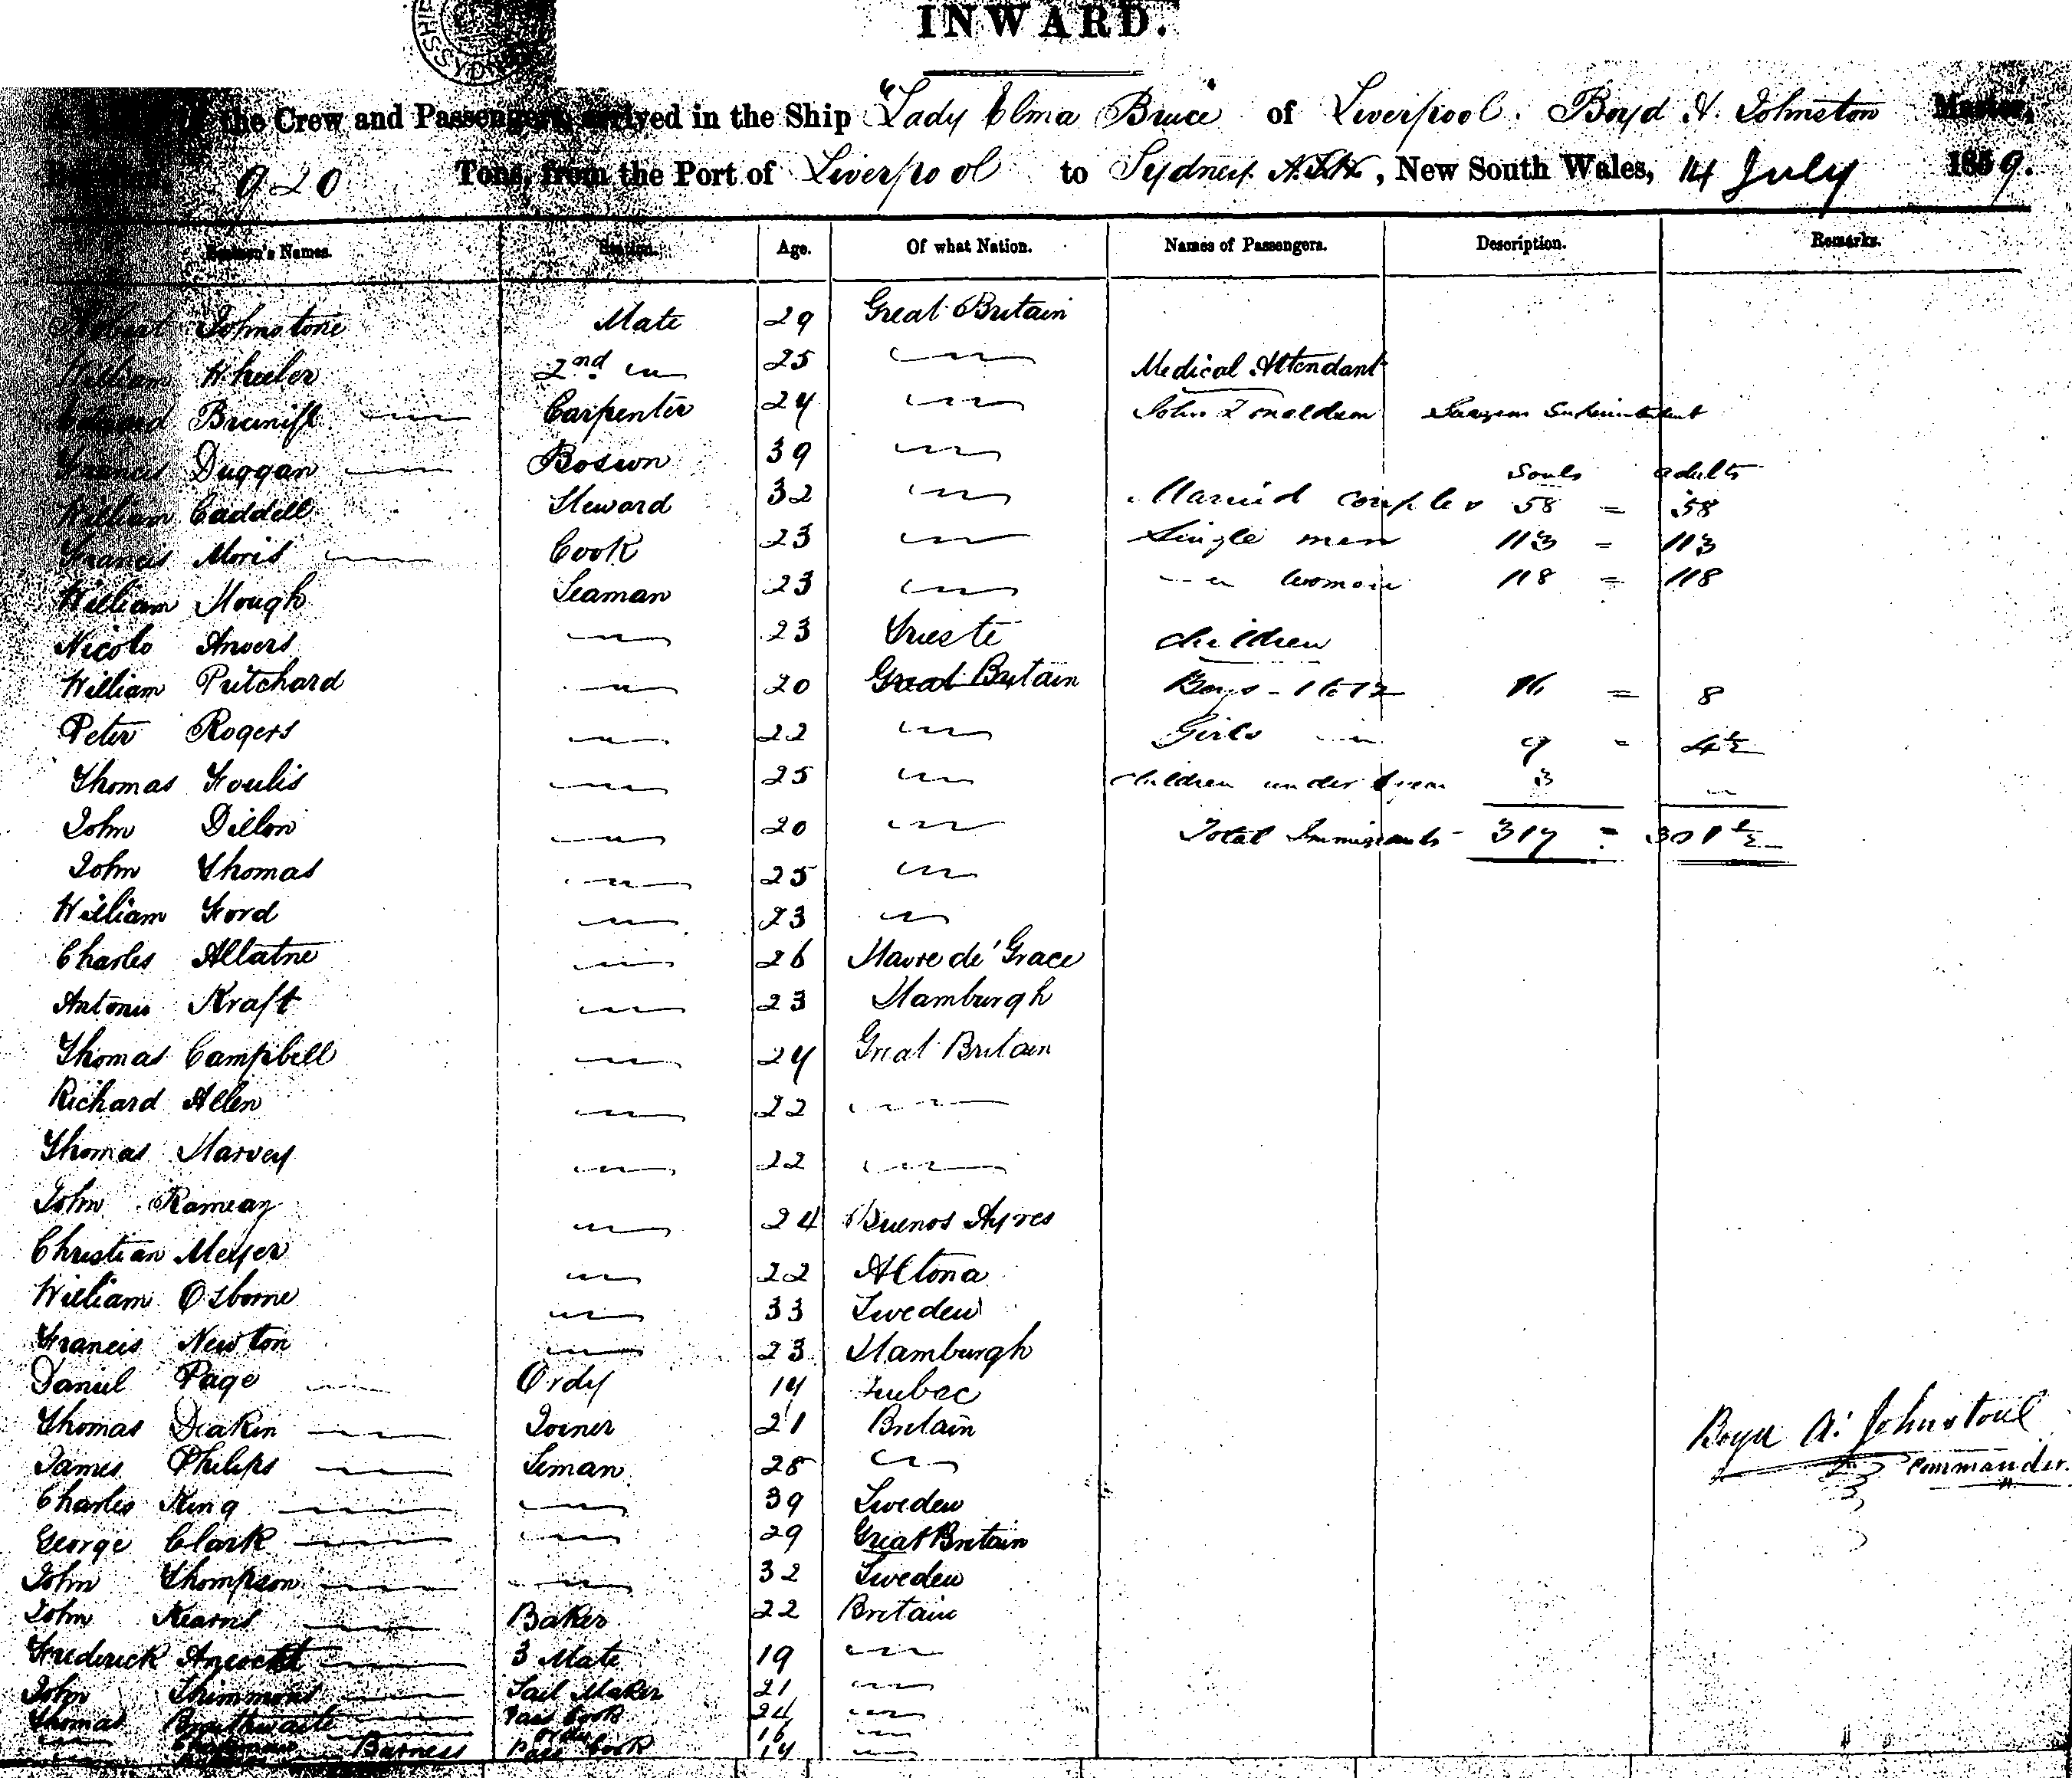 INWARD.
the Crew and Passengers, arrived in the Ship "Lady Elma Bruce" of Liverpool. Boyd A. Johnston Master,
Burthen, 920 Tons, from the Port of Liverpool to Sydney N.S.W, New South Wales, 14 July 1859.
Seamen's Names. Station. Age. Of what Nation. Names of Passengers. Description. Remarks.
Robert Johnstone Mate 29 Great Britain
William Wheeler 2nd " 25 " Medical Attendant
Carpenter 24 " John Surgeon Superintendent
Francis Duggan Boswn 39 "
Souls adults
William Caddell Steward 32 " Married couples 58 = 58
Francis Moris Cook 23 " Single men 113 = 113
William Hough Seaman 23 " " women 118 = 118
Nicolo Anvers " 23 Trieste children
William Pritchard " 20 Great Britain Boys - 1 to 12 16 = 8
Peter Rogers " 22 " Girls " 9 = 4½
Thomas Foulis " 25 " children under 1 year 3 "
John Dillon " 20 " Total Immigrants - 317 = 301½
John Thomas " 25 "
William Ford " 23 "
Charles Allatne " 26 Havre de' Grace
Antonio Kraft " 23 Hamburgh
Thomas Campbell " 24 Great Britain
Richard Allen " 22 "
Thomas Harvey " 22 "
John Rameay " 24 Buenos Ayres
Christian Meyer " 22 Altona
William Osborne " 33 Sweden
Francis Newton " 23 Hamburgh
Daniel Page Ordy 14 Lubec
Thomas Deakin Joiner 21 Britain
James Philips Seman 28 "
Charles King " 39 Sweden
George Clark " 29 Great Britain
John Thompson " 32 Sweden
John Kearns Baker 22 Britain
Frederick 3 Mate 19 "
John Shimmons Sail Maker 21 "
Thomas Braithwaite Pass Cook 24 "
Ordy 16 "
Burness Pass Cook 14 "
Boyd A. Johnstone
Commander.